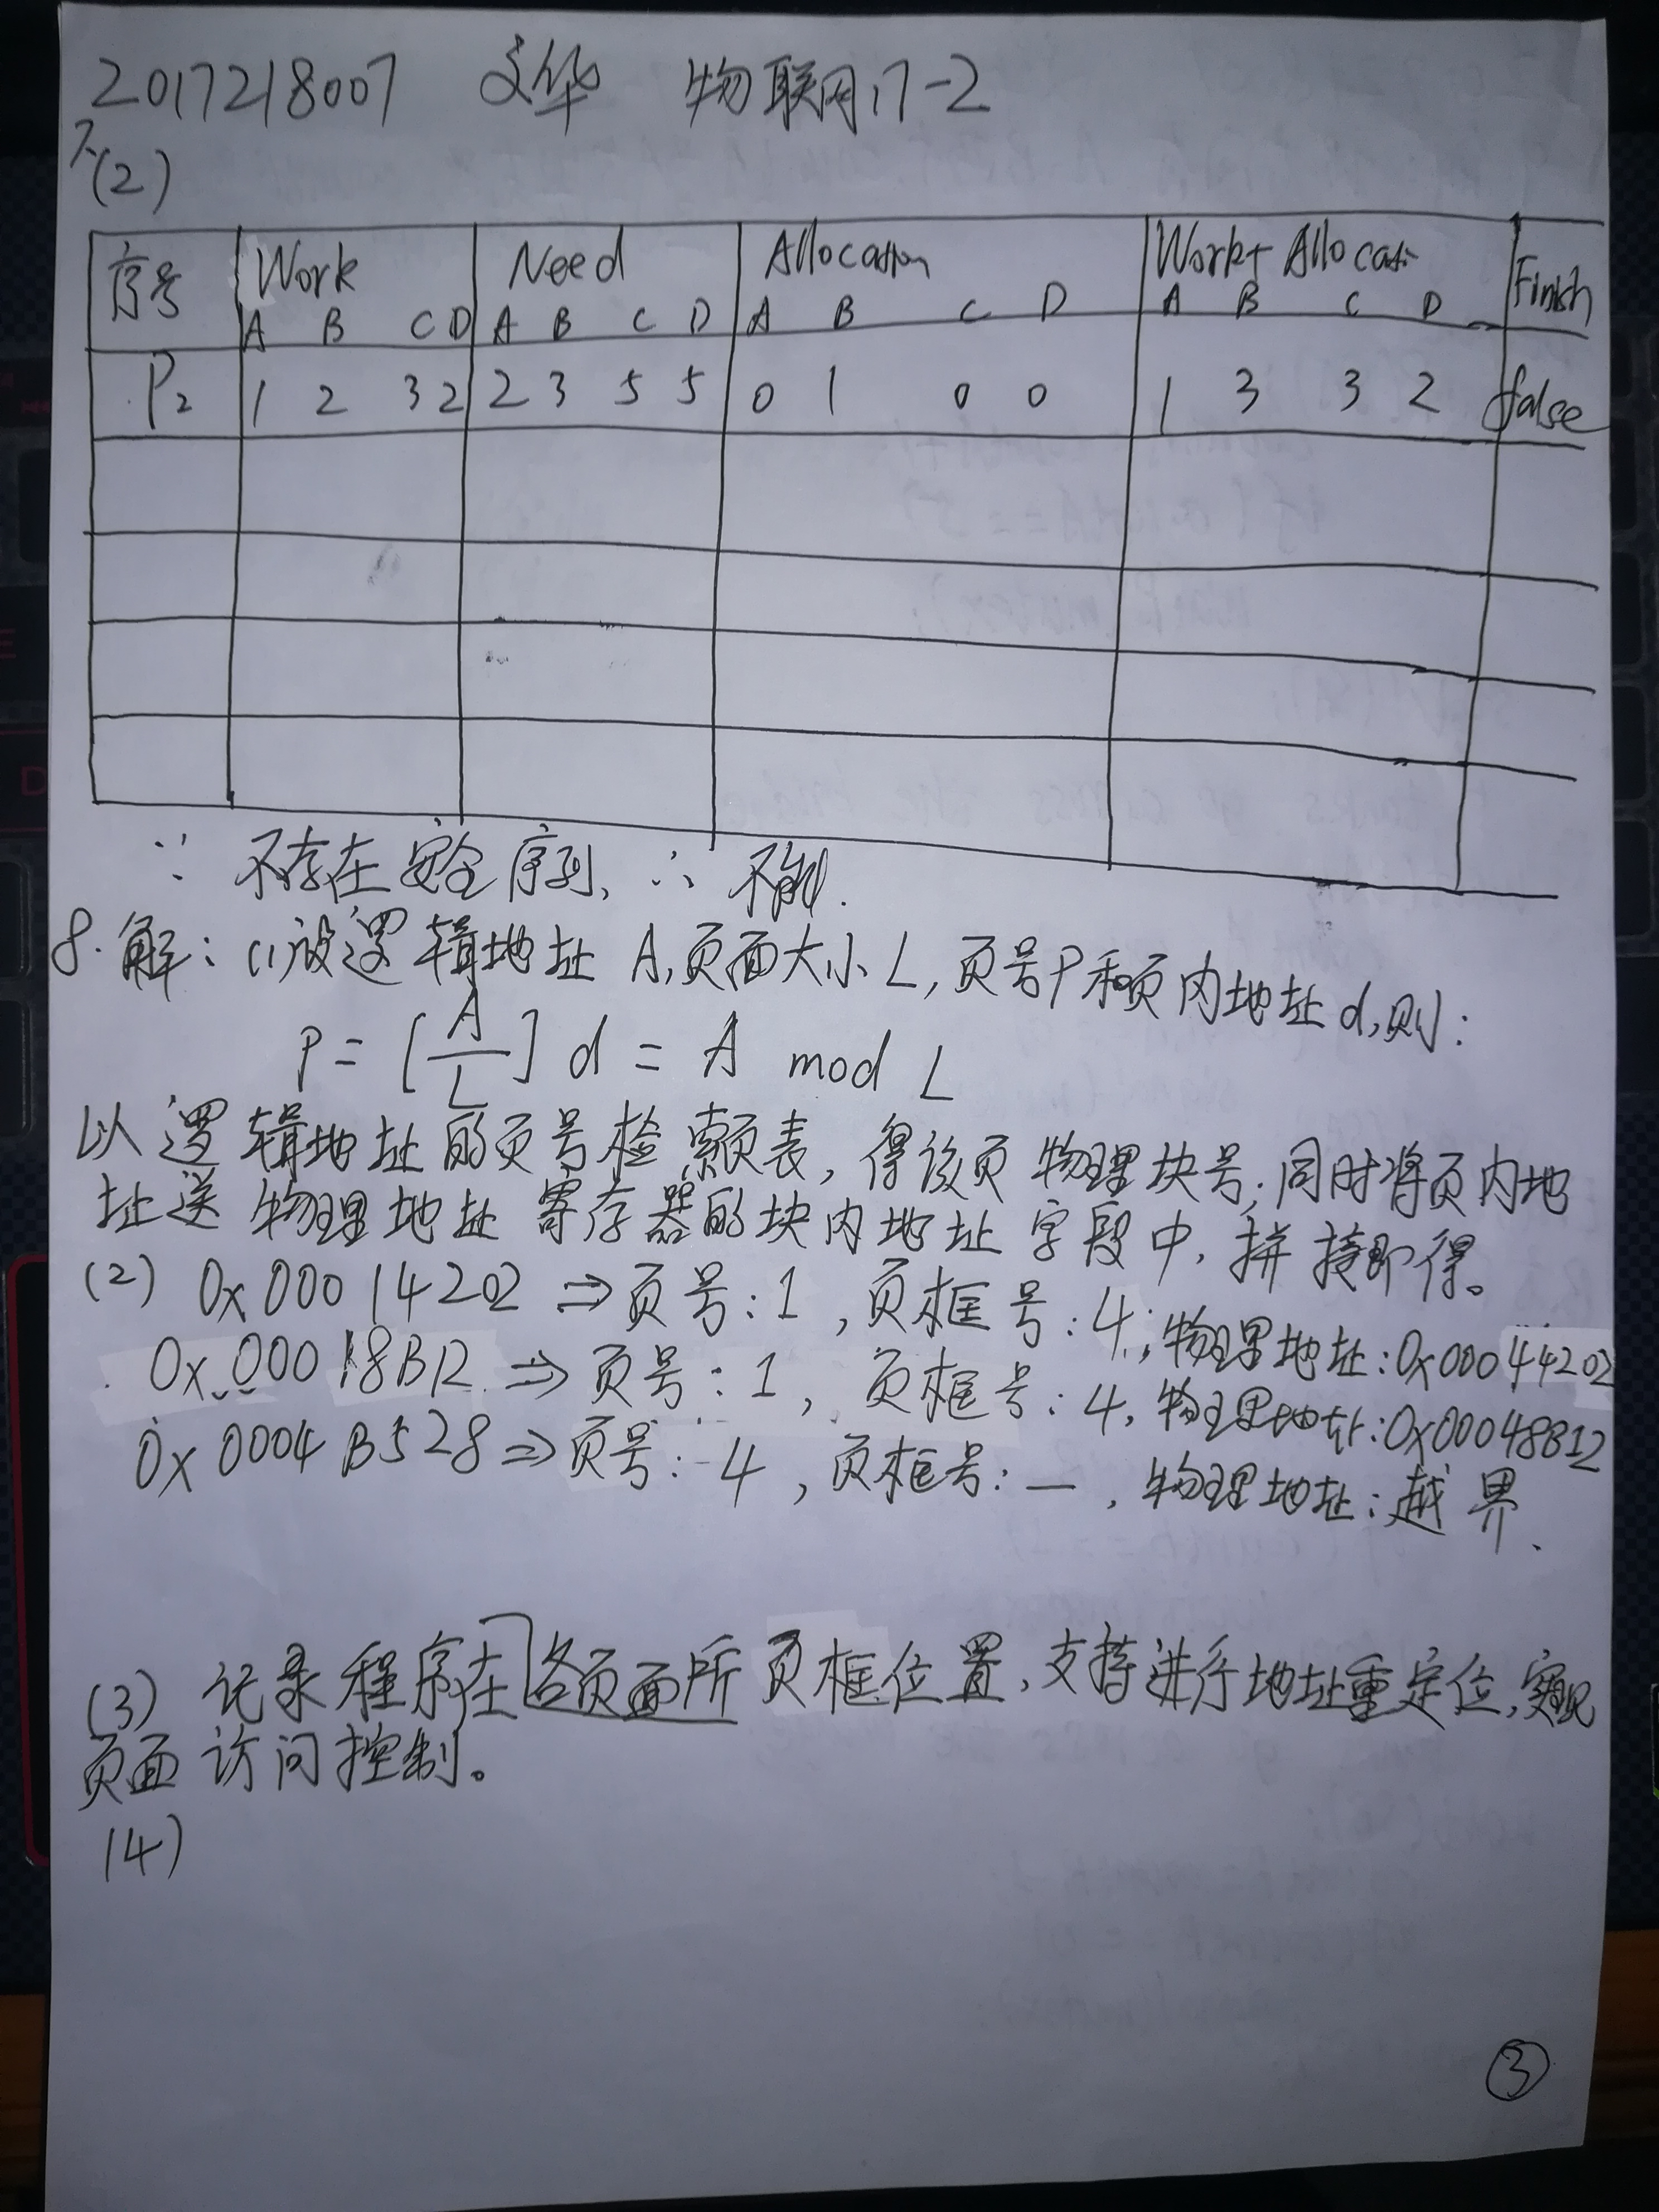 2017218007 文华 物联网17-2
7.
(2)
序号 Work Need Allocation Work+Allocati Finish
A B C D A B C D A B C D A B C D
P2 1 2 3 2 2 3 5 5 0 1 0 0 1 3 3 2 false
∵ 不存在安全序列, ∴ 不能.
8. 解: (1)设逻辑地址 A,页面大小 L,页号P和页内地址d,则:
P = [A/L] d = A mod L
以逻辑地址的页号检索页表, 得该页物理块号;同时将页内地
址送物理地址寄存器的块内地址字段中, 拼接即得。
(2) 0x00014202 ⇒ 页号:1 ,页框号:4,物理地址:0x00044202
0x00018B12 ⇒ 页号:1, 页框号:4,物理地址:0x00048B12
0x0004B528 ⇒ 页号:4 ,页框号:— ,物理地址:越界.
(3) 记录程序在各页面所页框位置,支持进行地址重定位,实现
页面访问控制。
(4)
③